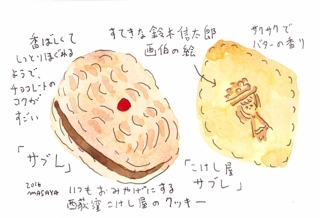 香ばしくて
しっとりほぐれる
ようで、
チョコレートの
コクが
すごい
すてきな鈴木信太郎
画伯の絵
サクサクで
バターの香り
「サブレ」
「こけし屋
サブレ」
2016
MASAYA
いつもおみやげにする
西荻窪こけし屋のクッキー